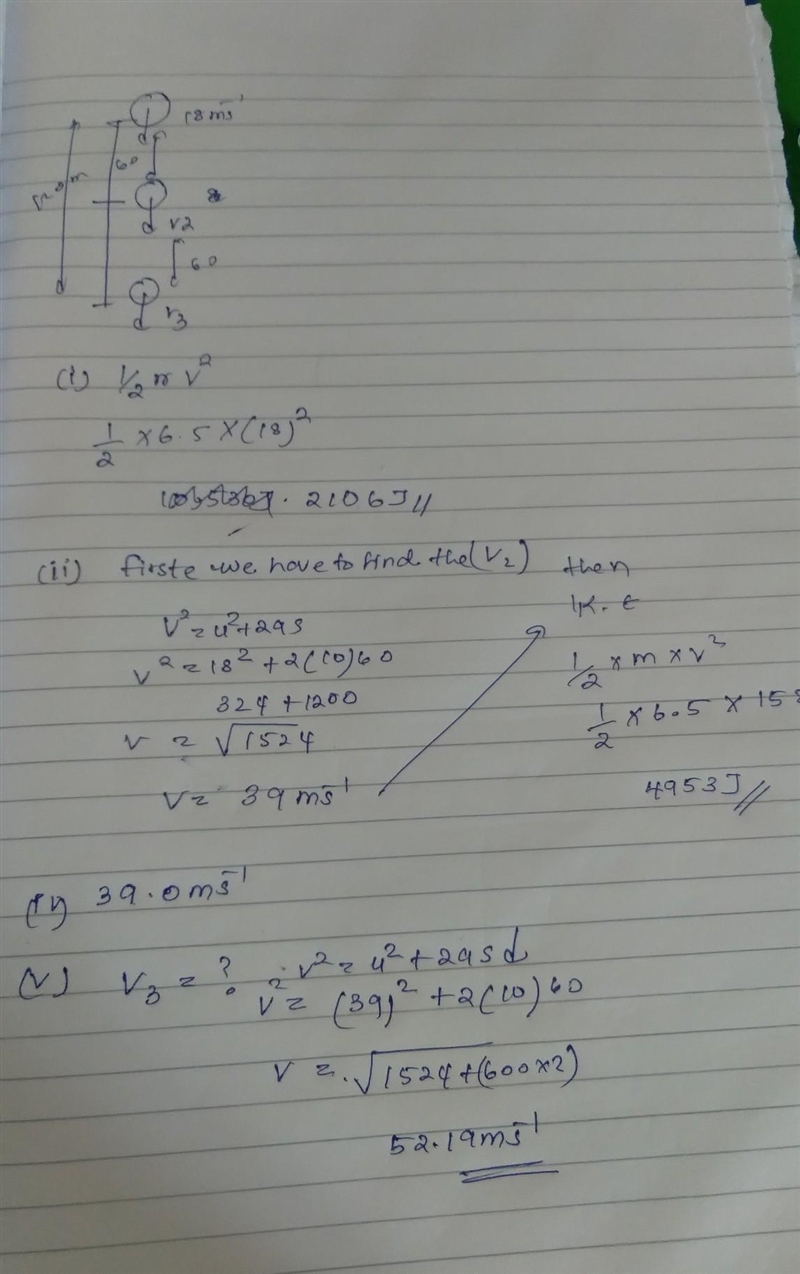 18 ms⁻¹
60
m
V2
60
V3
(i) 1/2 m v²
1/2 × 6.5 × (18)²
2106 J //
(ii) firste we have to find the (V₂) then
K.E
V² = u² + 2as
v² = 18² + 2(10)60
1/2 × m × v²
324 + 1200
1/2 × 6.5 × 152
v = √1524
V = 39 ms⁻¹
4953 J //
(iv) 39.0 ms⁻¹
(V) V₃ = ? v² = u² + 2as d
v² = (39)² + 2(10)60
v = √1524 + (600×2)
52.19 ms⁻¹